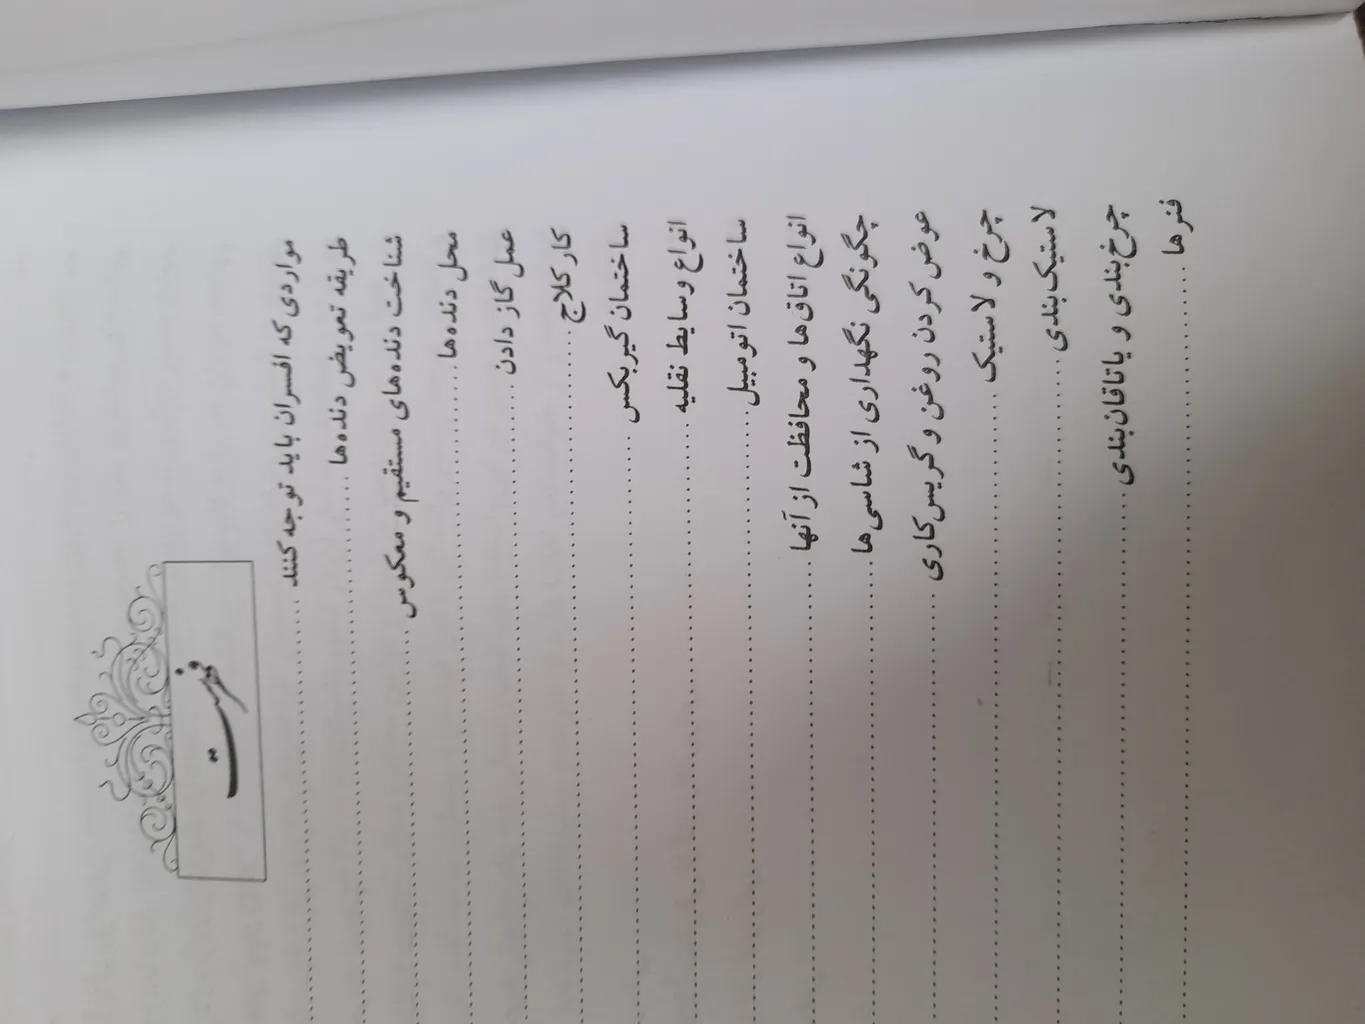 فهرست
مواردی که افسران باید توجه کنند
طریقه تعویض دنده‌ها
شناخت دنده‌های مستقیم و معکوس
محل دنده‌ها
عمل گاز دادن
کار کلاج
ساختمان گیربکس
انواع وسایط نقلیه
ساختمان اتومبیل
انواع اتاق‌ها و محافظت از آنها
چگونگی نگهداری از شاسی‌ها
عوض کردن روغن و گریس‌کاری
چرخ و لاستیک
لاستیک‌بندی
چرخ‌بندی و یاتاقان‌بندی
فنرها